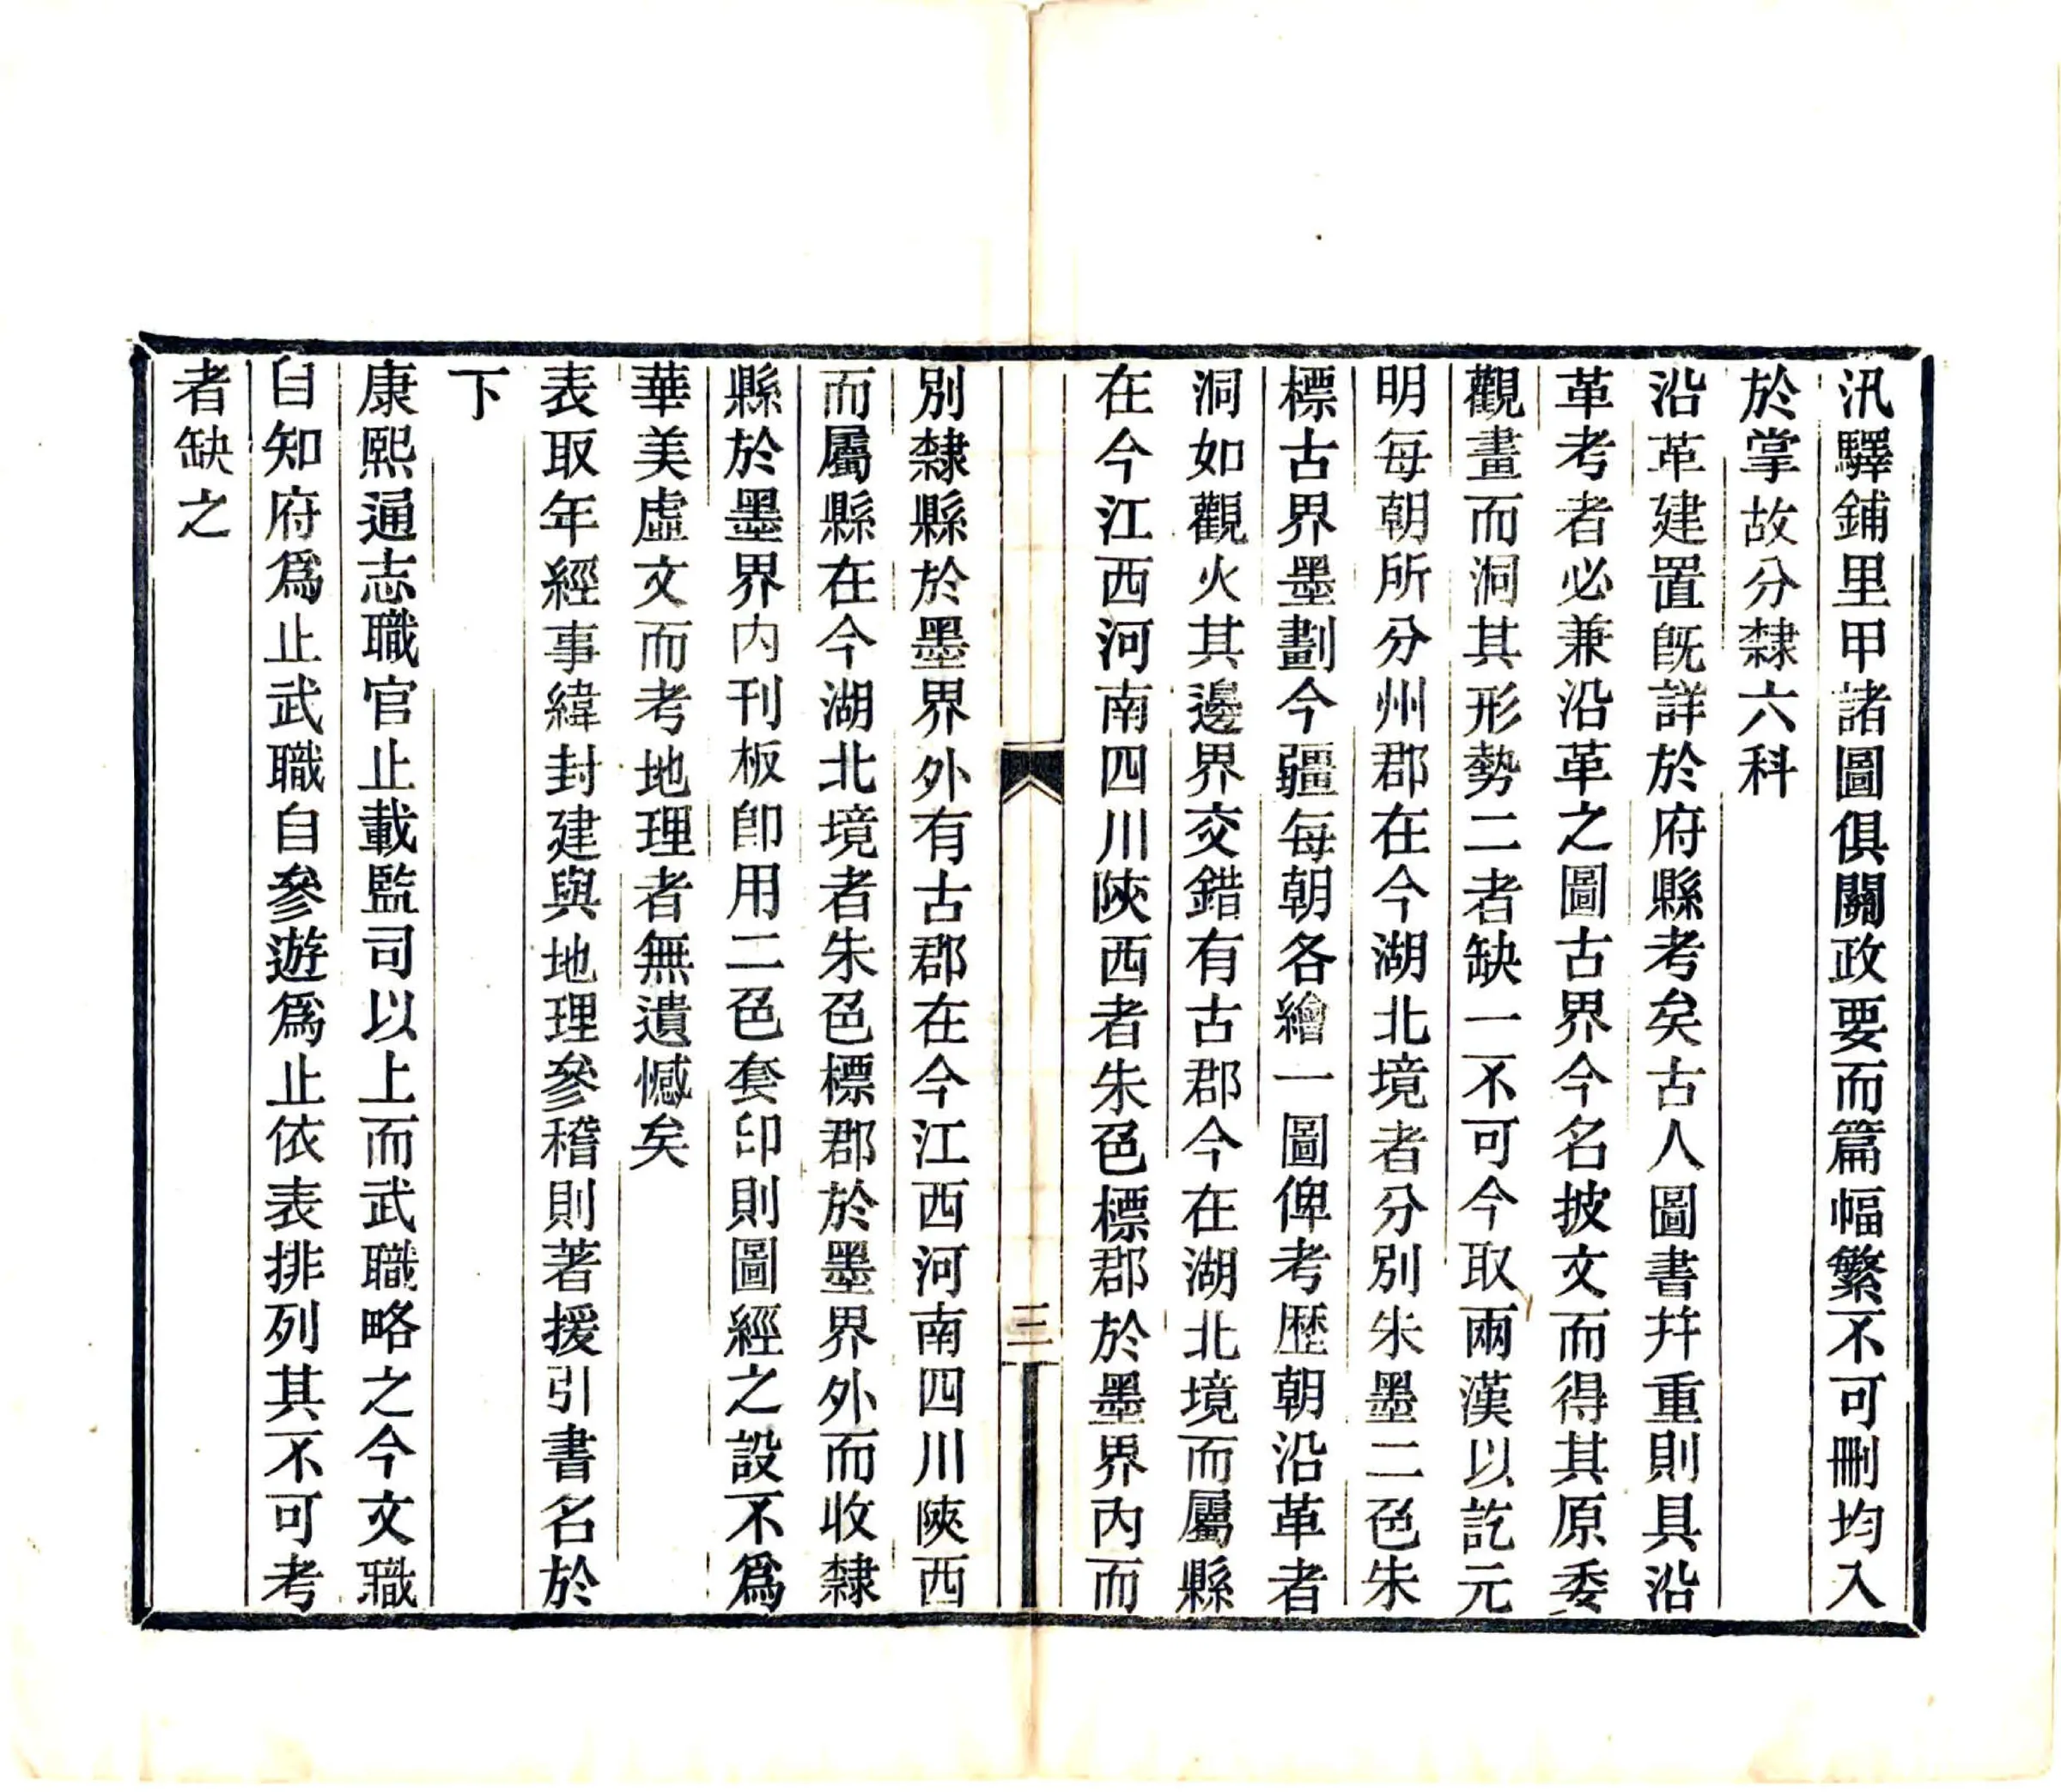 汛驛鋪里甲諸圖俱關政要而篇幅繁不可刪均入
於掌故分隸六科
沿革建置旣詳於府縣考矣古人圖書幷重則具沿
革考者必兼沿革之圖古界今名披文而得其原委
觀畫而洞其形勢二者缺一不可今取兩漢以訖元
明每朝所分州郡在今湖北境者分別朱墨二色朱
標古界墨劃今疆每朝各繪一圖俾考歷朝沿革者
洞如觀火其邊界交錯有古郡今在湖北境而屬縣
在今江西河南四川陝西者朱色標郡於墨界內而
三
別隸縣於墨界外有古郡在今江西河南四川陝西
而屬縣在今湖北境者朱色標郡於墨界外而收隸
縣於墨界內刊板卽用二色套印則圖經之設不爲
華美虛文而考地理者無遺憾矣
表取年經事緯封建與地理參稽則著援引書名於
下
康熙通志職官止載監司以上而武職略之今文職
自知府爲止武職自參遊爲止依表排列其不可考
者缺之